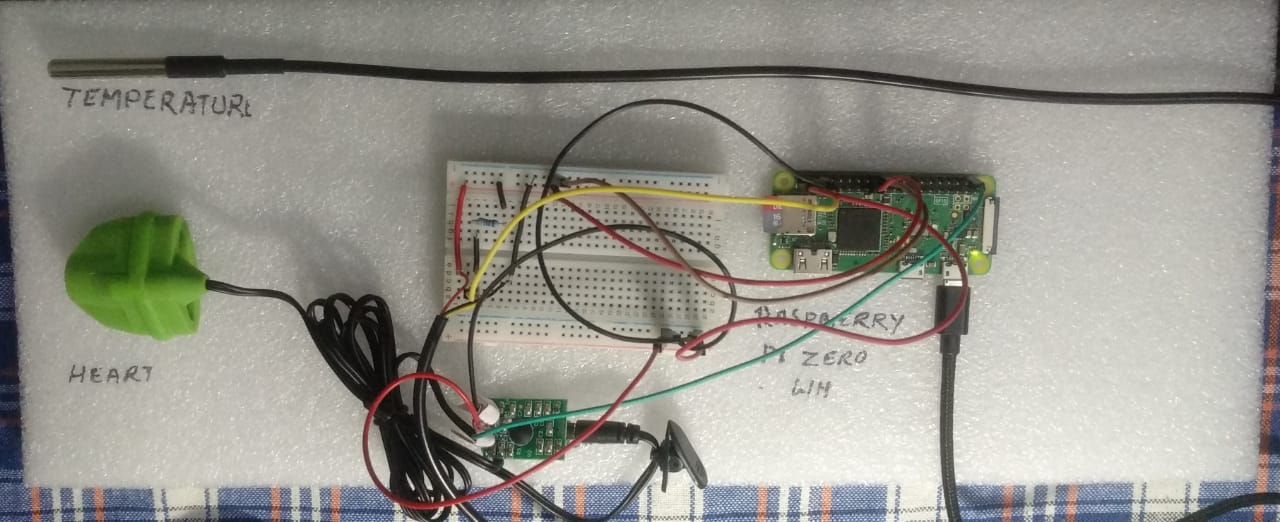 TEMPERATURE
HEART
RASPBERRY
PI ZERO
WH